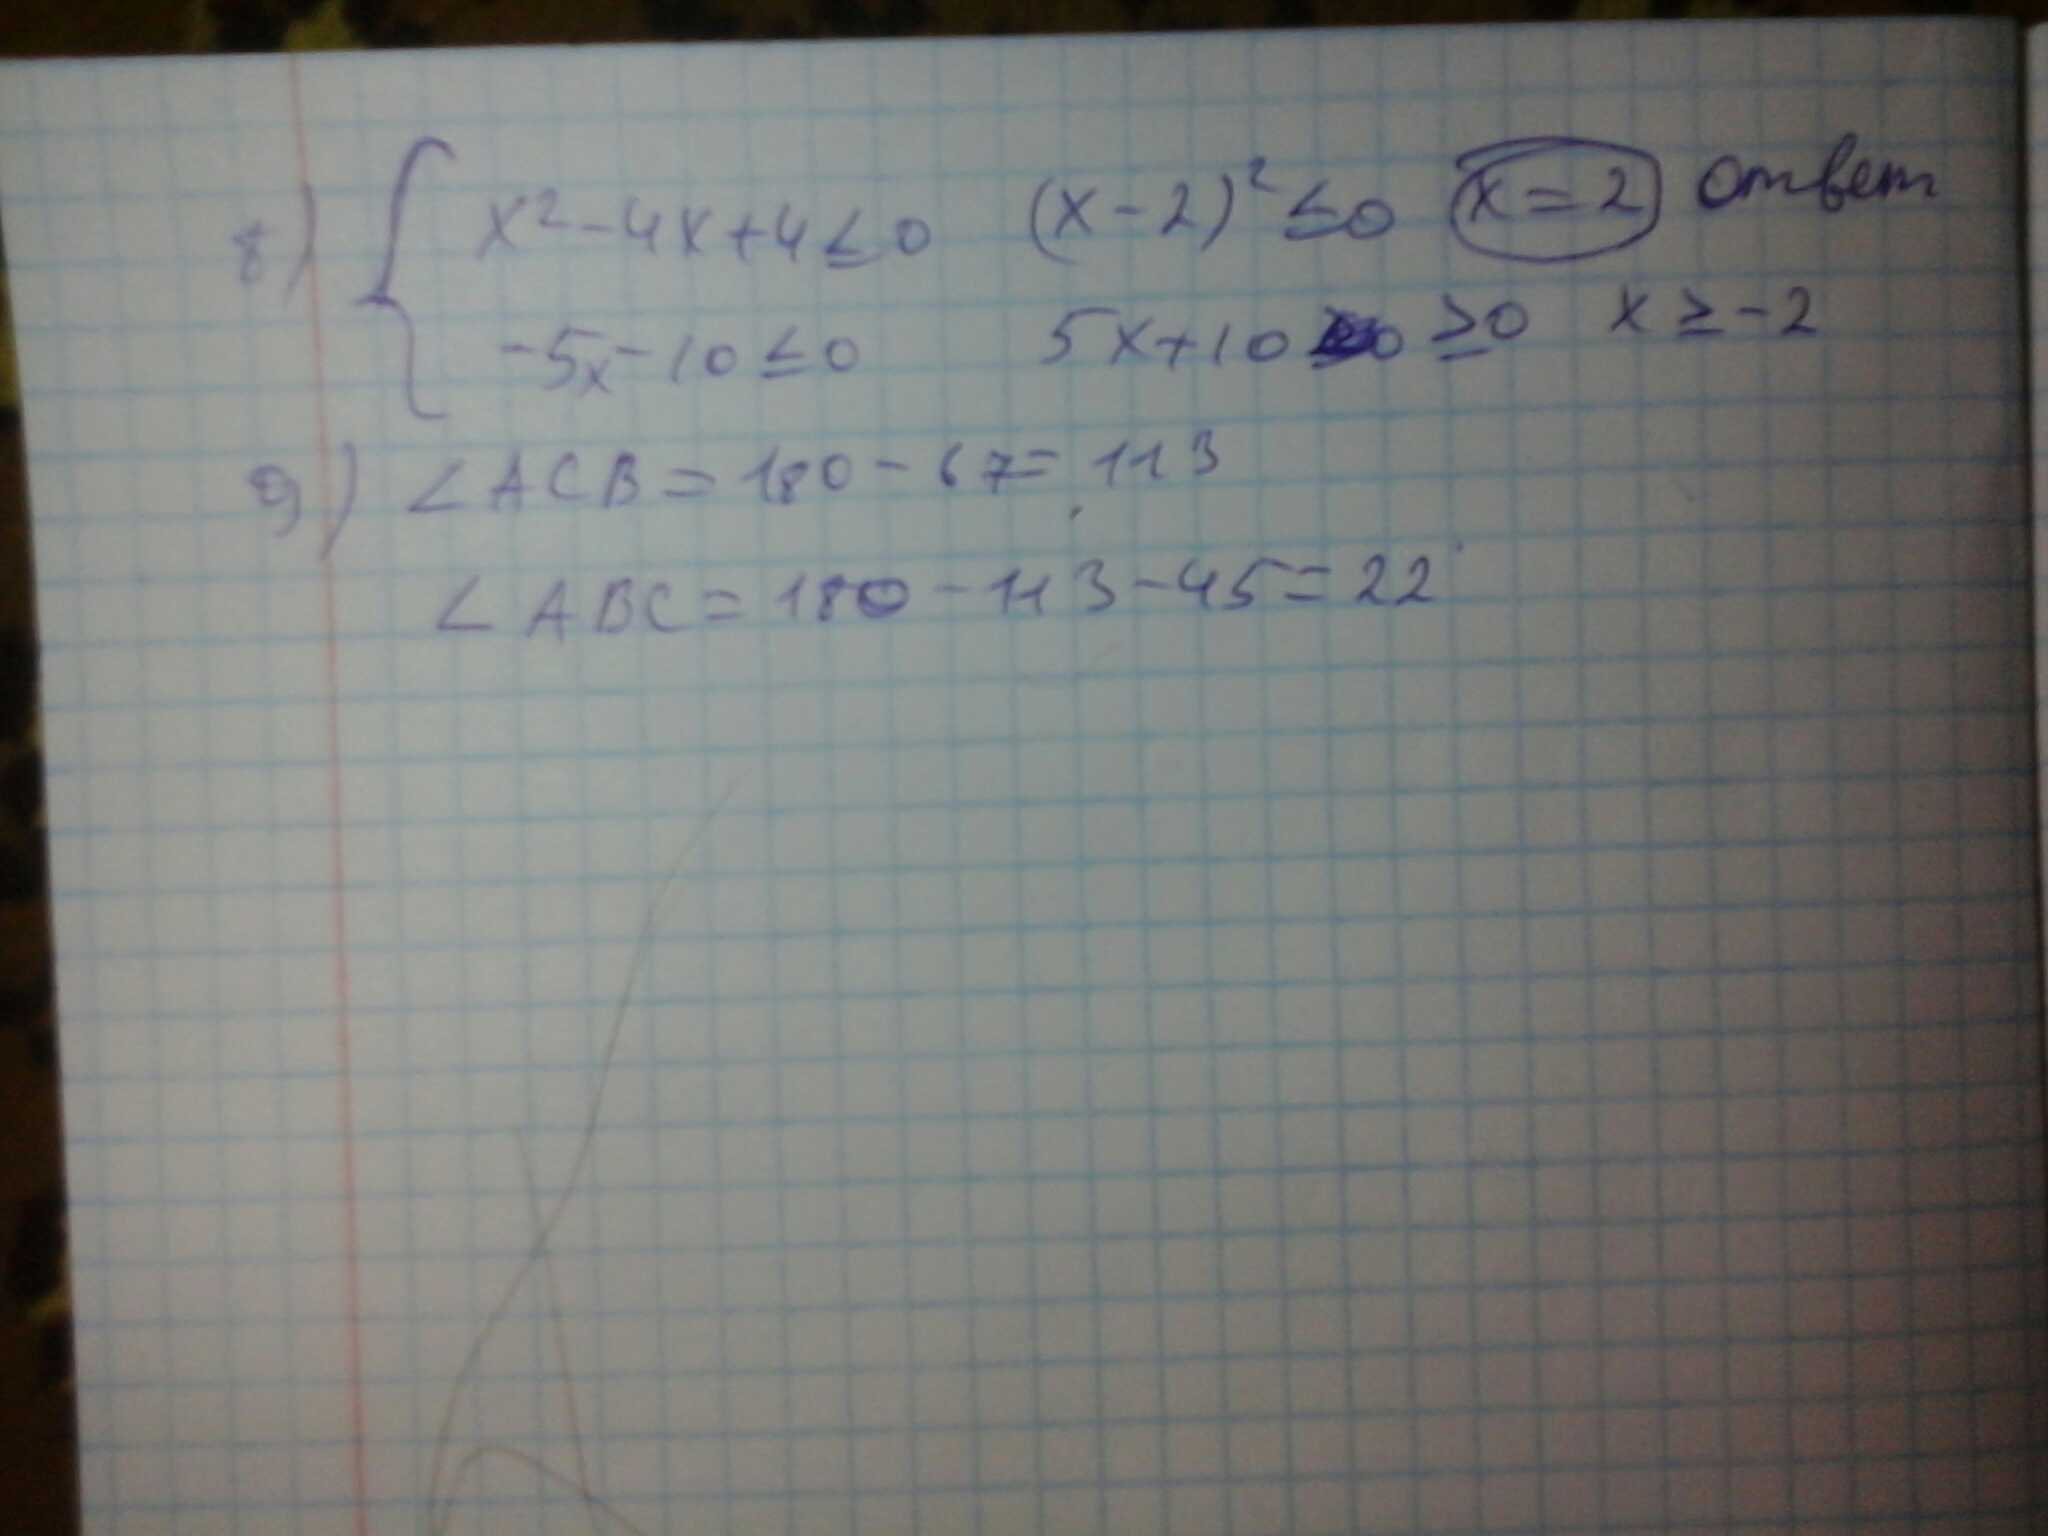 8) { x² - 4x + 4 ≤ 0 (x - 2)² ≤ 0 x = 2 ответ
-5x - 10 ≤ 0 5x + 10 ≥ 0 x ≥ -2
9) ∠ACB = 180 - 67 = 113
∠ABC = 180 - 113 - 45 = 22